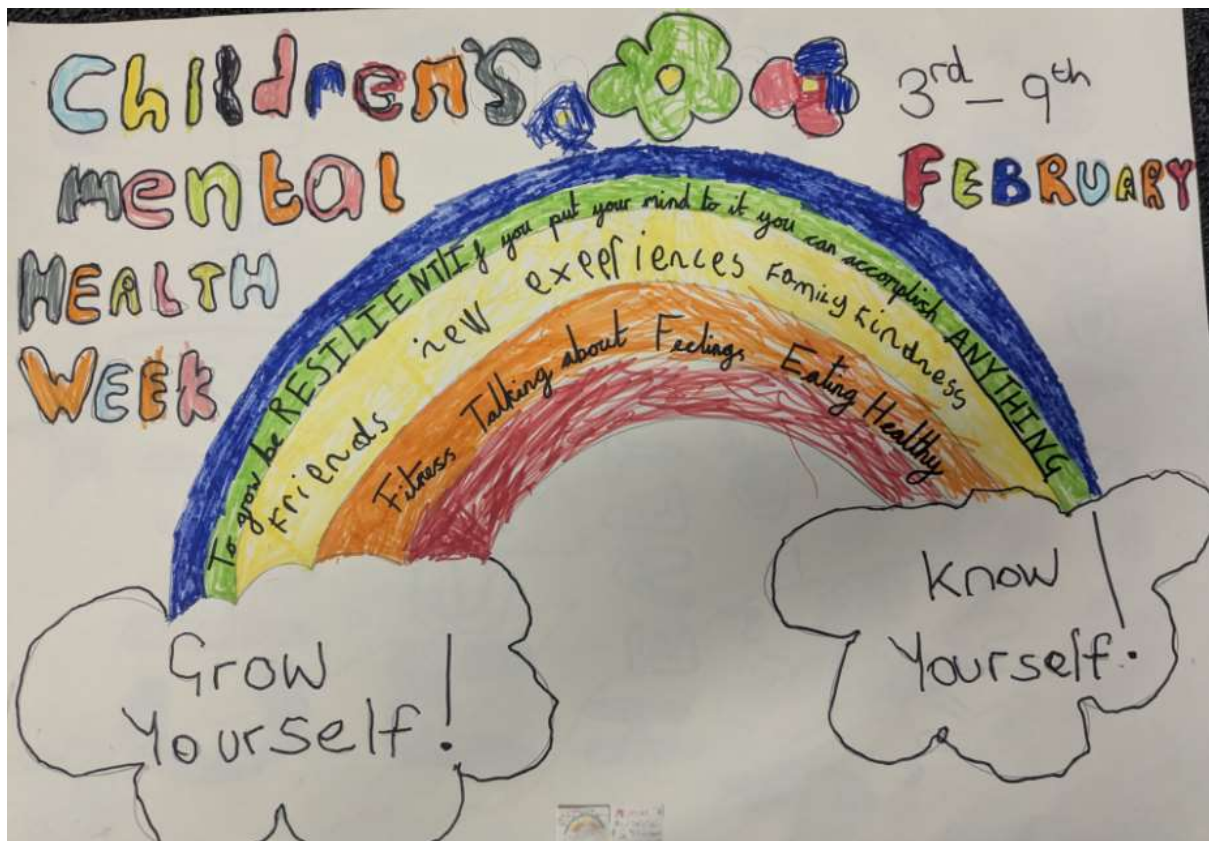 Children's
mental
HEALTH
WEEK
3rd - 9th
FEBRUARY
To grow be RESILIENT! If you put your mind to it you can accomplish ANYTHING
Friends new experiences Family kindness
Fitness Talking about Feelings Eating Healthy
Grow
Yourself!
Know
Yourself!